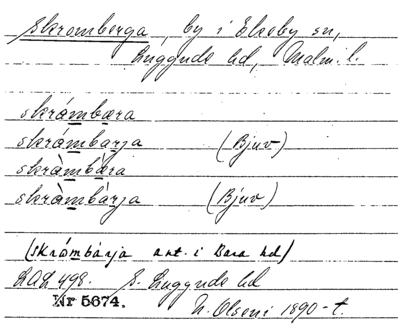 Skromberga, by i Ekeby sn,
Luggude hd, Malm. l.
skrámbæra
skrámbærja (Bjuv)
skràmbæra
skràmbærja (Bjuv)
(skrámbärja ant. i Bara hd)
LAL 498. S. Luggude hd
Nr 5674. N. Olseni 1890-t.